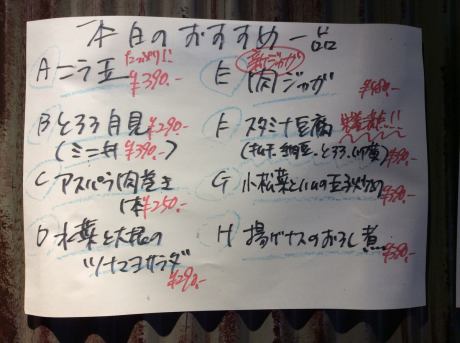 本日のおすすめ一品
A ニラ玉 たっぷり!! ¥390.-
B とろろ月見 ¥290.-
(ミニ丼 ¥390.-)
C アスパラ肉巻き
1本 ¥250.-
D 水菜と大根の
"ツナマヨサラダ"
¥290.-
新ジャガ
E (肉)ジャガ
F スタミナ豆腐
(キムチ、納豆、とろろ、卵黄)
G 小松菜とハムの玉子炒め
H 揚げナスのおろし煮